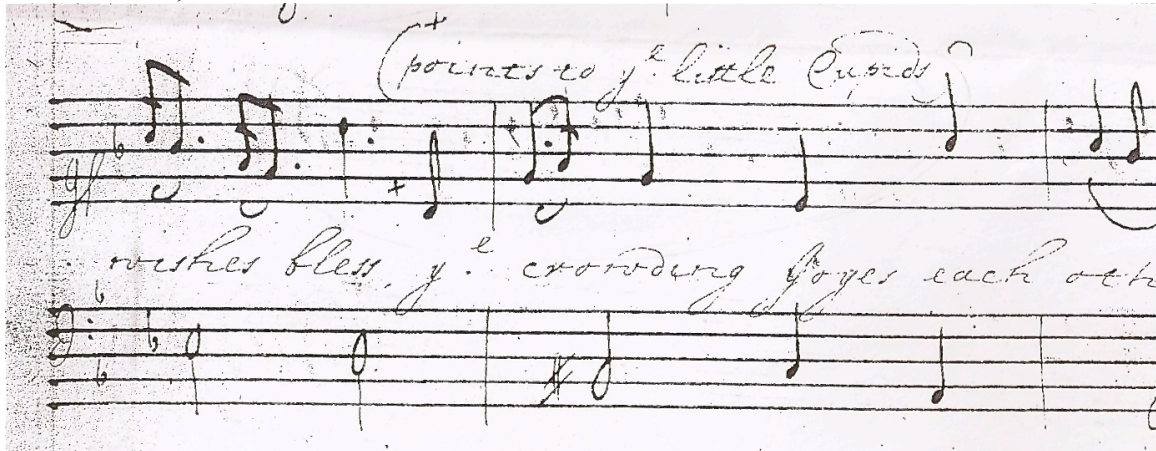 (points to yᵉ little Cupids)
wishes bless yᵉ crowding Joyes each oth